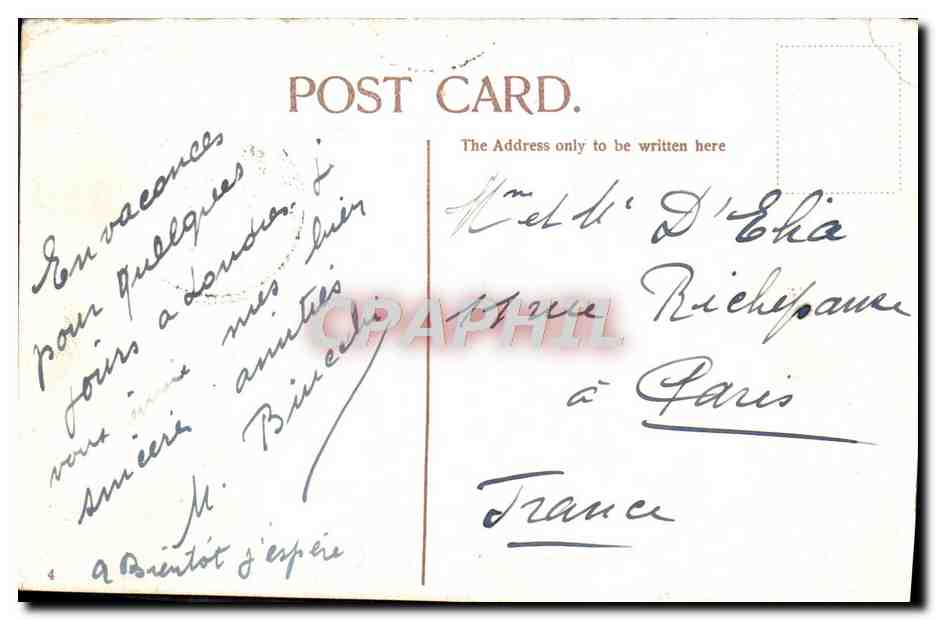 POST CARD.
The Address only to be written here
En vacances
pour quelques
jours à Londres. j
vous mes bien
sincères amitiés
M.
A Bientôt j'espère
4
Mme et Mr D'Elia
rue Richepanse
à Paris
France
CPAPHIL